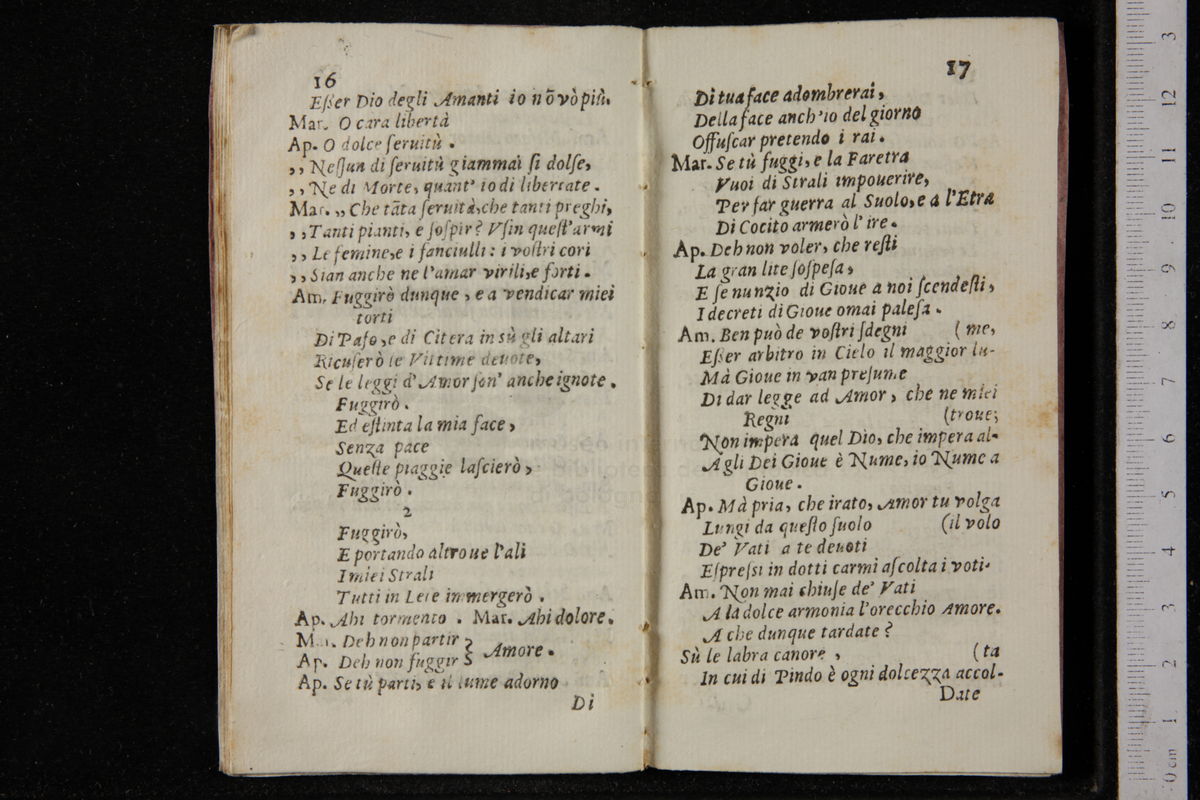 16
Eſſer Dio degli Amanti io nō vò più.
Mar. O cara libertà
Ap. O dolce ſeruitù .
,, Neſſun di ſeruitù giammai ſi dolſe,
,, Ne di Morte, quant' io di libertate .
Mar. ,, Che tāta ſeruità, che tanti preghi,
,, Tanti pianti, e ſoſpir? Vſin queſt'armi
,, Le femine, e i fanciulli: i voſtri cori
,, Sian anche ne l'amar virili, e forti .
Am. Fuggirò dunque , e a vendicar miei
torti
Di Pafo, e di Citera in sù gli altari
Ricuſerò le Vittime deuote,
Se le leggi d' Amor ſon' anche ignote .
Fuggirò .
Ed eſtinta la mia face ,
Senza pace
Queſte piaggie laſcierò ,
Fuggirò .
2
Fuggirò,
E portando altroue l'ali
I miei Strali
Tutti in Lete immergerò .
Ap. Ahi tormento . Mar. Ahi dolore .
Mar. Deh non partir
Ap. Deh non fuggir } Amore .
Ap. Se tù parti, e il lume adorno
Di
17
Di tua face adombrerai ,
Della face anch'io del giorno
Offuſcar pretendo i rai .
Mar. Se tù fuggi, e la Faretra
Vuoi di Strali impouerire,
Per far guerra al Suolo, e a l'Etra
Di Cocito armerò l' ire .
Ap. Deh non voler, che reſti
La gran lite ſoſpeſa ,
E ſe nunzio di Gioue a noi ſcendeſti ,
I decreti di Gioue omai paleſa .
Am. Ben può de voſtri ſdegni ( me,
Eſſer arbitro in Cielo il maggior lu-
Mà Gioue in van preſume
Di dar legge ad Amor , che ne miei
Regni (troue;
Non impera quel Dio, che impera al-
Agli Dei Gioue è Nume, io Nume a
Gioue .
Ap. Mà pria, che irato, Amor tu volga
Lungi da queſto ſuolo (il volo
De' Vati a te deuoti
Eſpreſsi in dotti carmi aſcolta i voti.
Am. Non mai chiuſe de' Vati
A la dolce armonia l'orecchio Amore.
A che dunque tardate ?
Sù le labra canore , (ta
In cui di Pindo è ogni dolcezza accol-
Date
0 cm 1 2 3 4 5 6 7 8 9 10 11 12 3